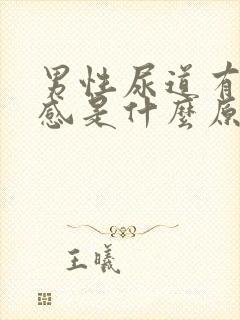 男性尿道有
感是什麼原
王曦